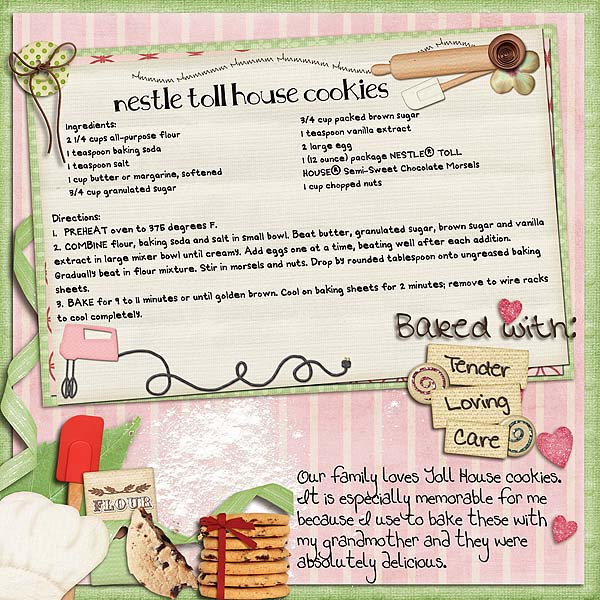 nestle toll house cookies
Ingredients:
2 1/4 cups all-purpose flour
1 teaspoon baking soda
1 teaspoon salt
1 cup butter or margarine, softened
3/4 cup granulated sugar
3/4 cup packed brown sugar
1 teaspoon vanilla extract
2 large egg
1 (12 ounce) package NESTLE® TOLL
HOUSE® Semi-Sweet Chocolate Morsels
1 cup chopped nuts
Directions:
1. PREHEAT oven to 375 degrees F.
2. COMBINE flour, baking soda and salt in small bowl. Beat butter, granulated sugar, brown sugar and vanilla
extract in large mixer bowl until creamy. Add eggs one at a time, beating well after each addition.
Gradually beat in flour mixture. Stir in morsels and nuts. Drop by rounded tablespoon onto ungreased baking
sheets.
3. BAKE for 9 to 11 minutes or until golden brown. Cool on baking sheets for 2 minutes; remove to wire racks
to cool completely.
Baked with:
Tender
Loving
Care
FLOUR
Our family loves Toll House cookies.
It is especially memorable for me
because I use to bake these with
my grandmother and they were
absolutely delicious.